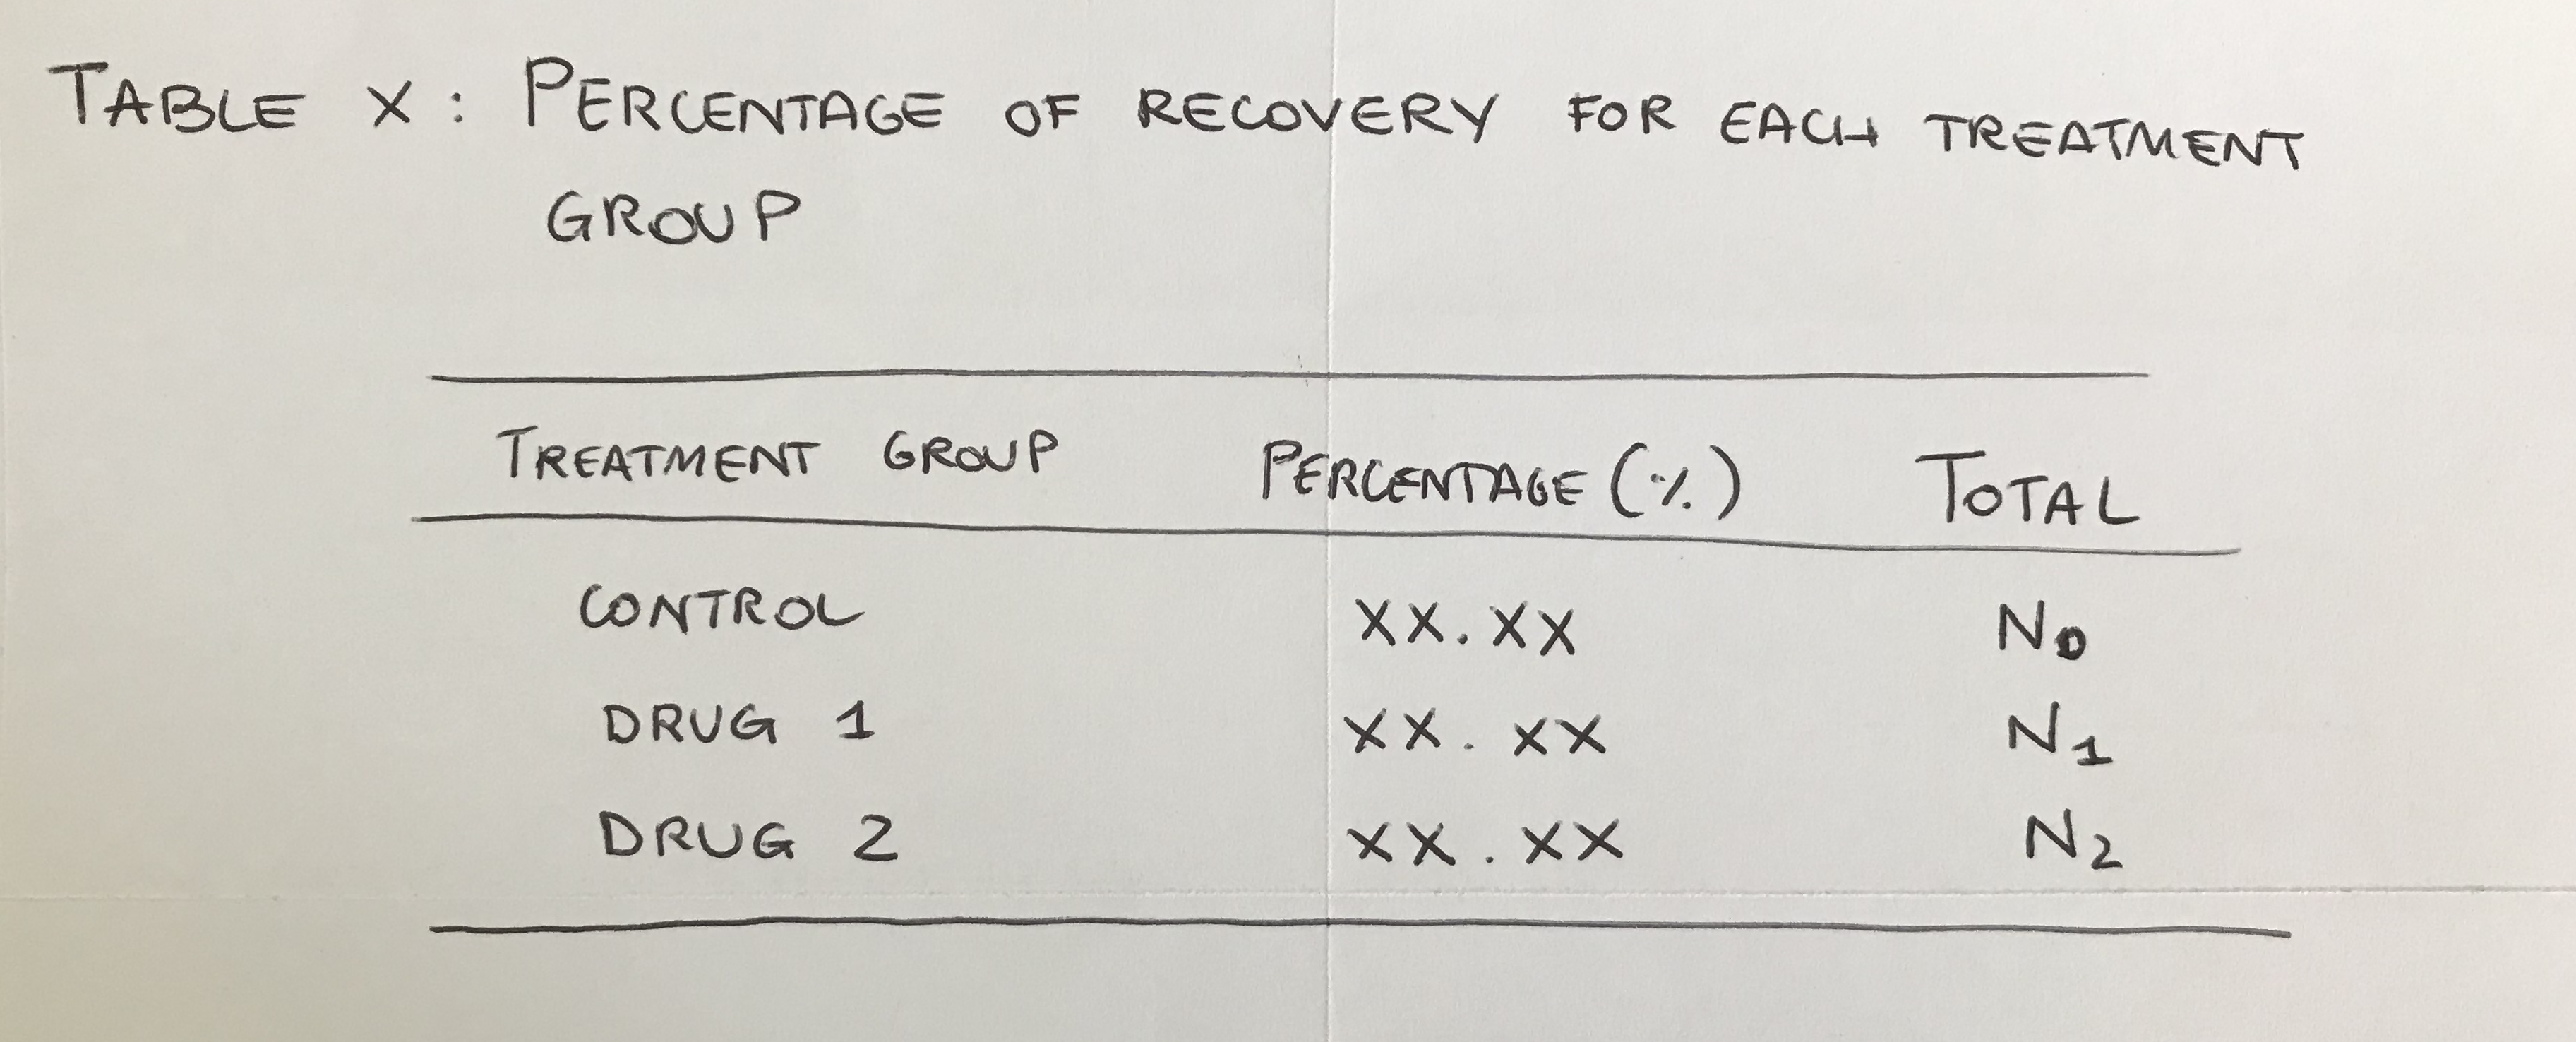 TABLE X: PERCENTAGE OF RECOVERY FOR EACH TREATMENT
GROUP
TREATMENT GROUP PERCENTAGE (%) TOTAL
CONTROL XX.XX N0
DRUG 1 XX.XX N1
DRUG 2 XX.XX N2